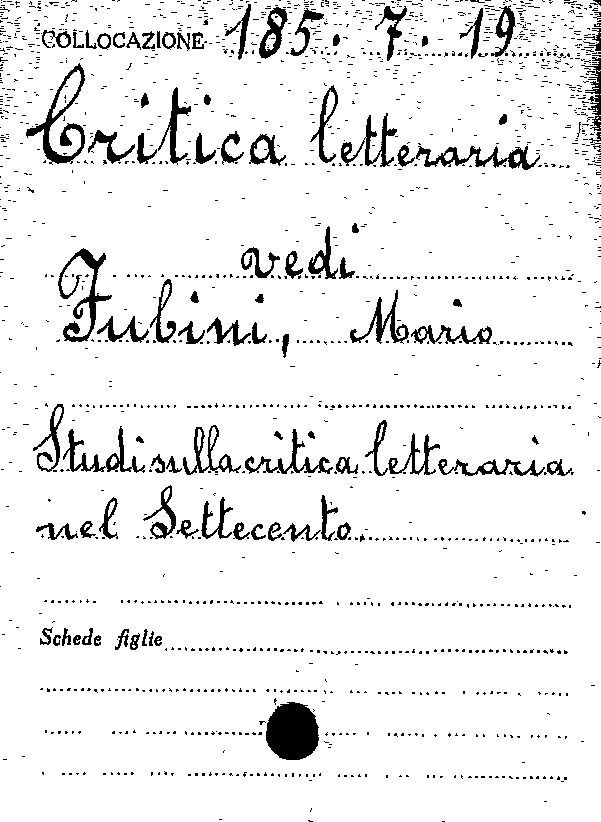 COLLOCAZIONE 185. 7. 19
Critica letteraria
vedi
Fubini, Mario
Studi sulla critica letteraria
nel Settecento.
Schede figlie